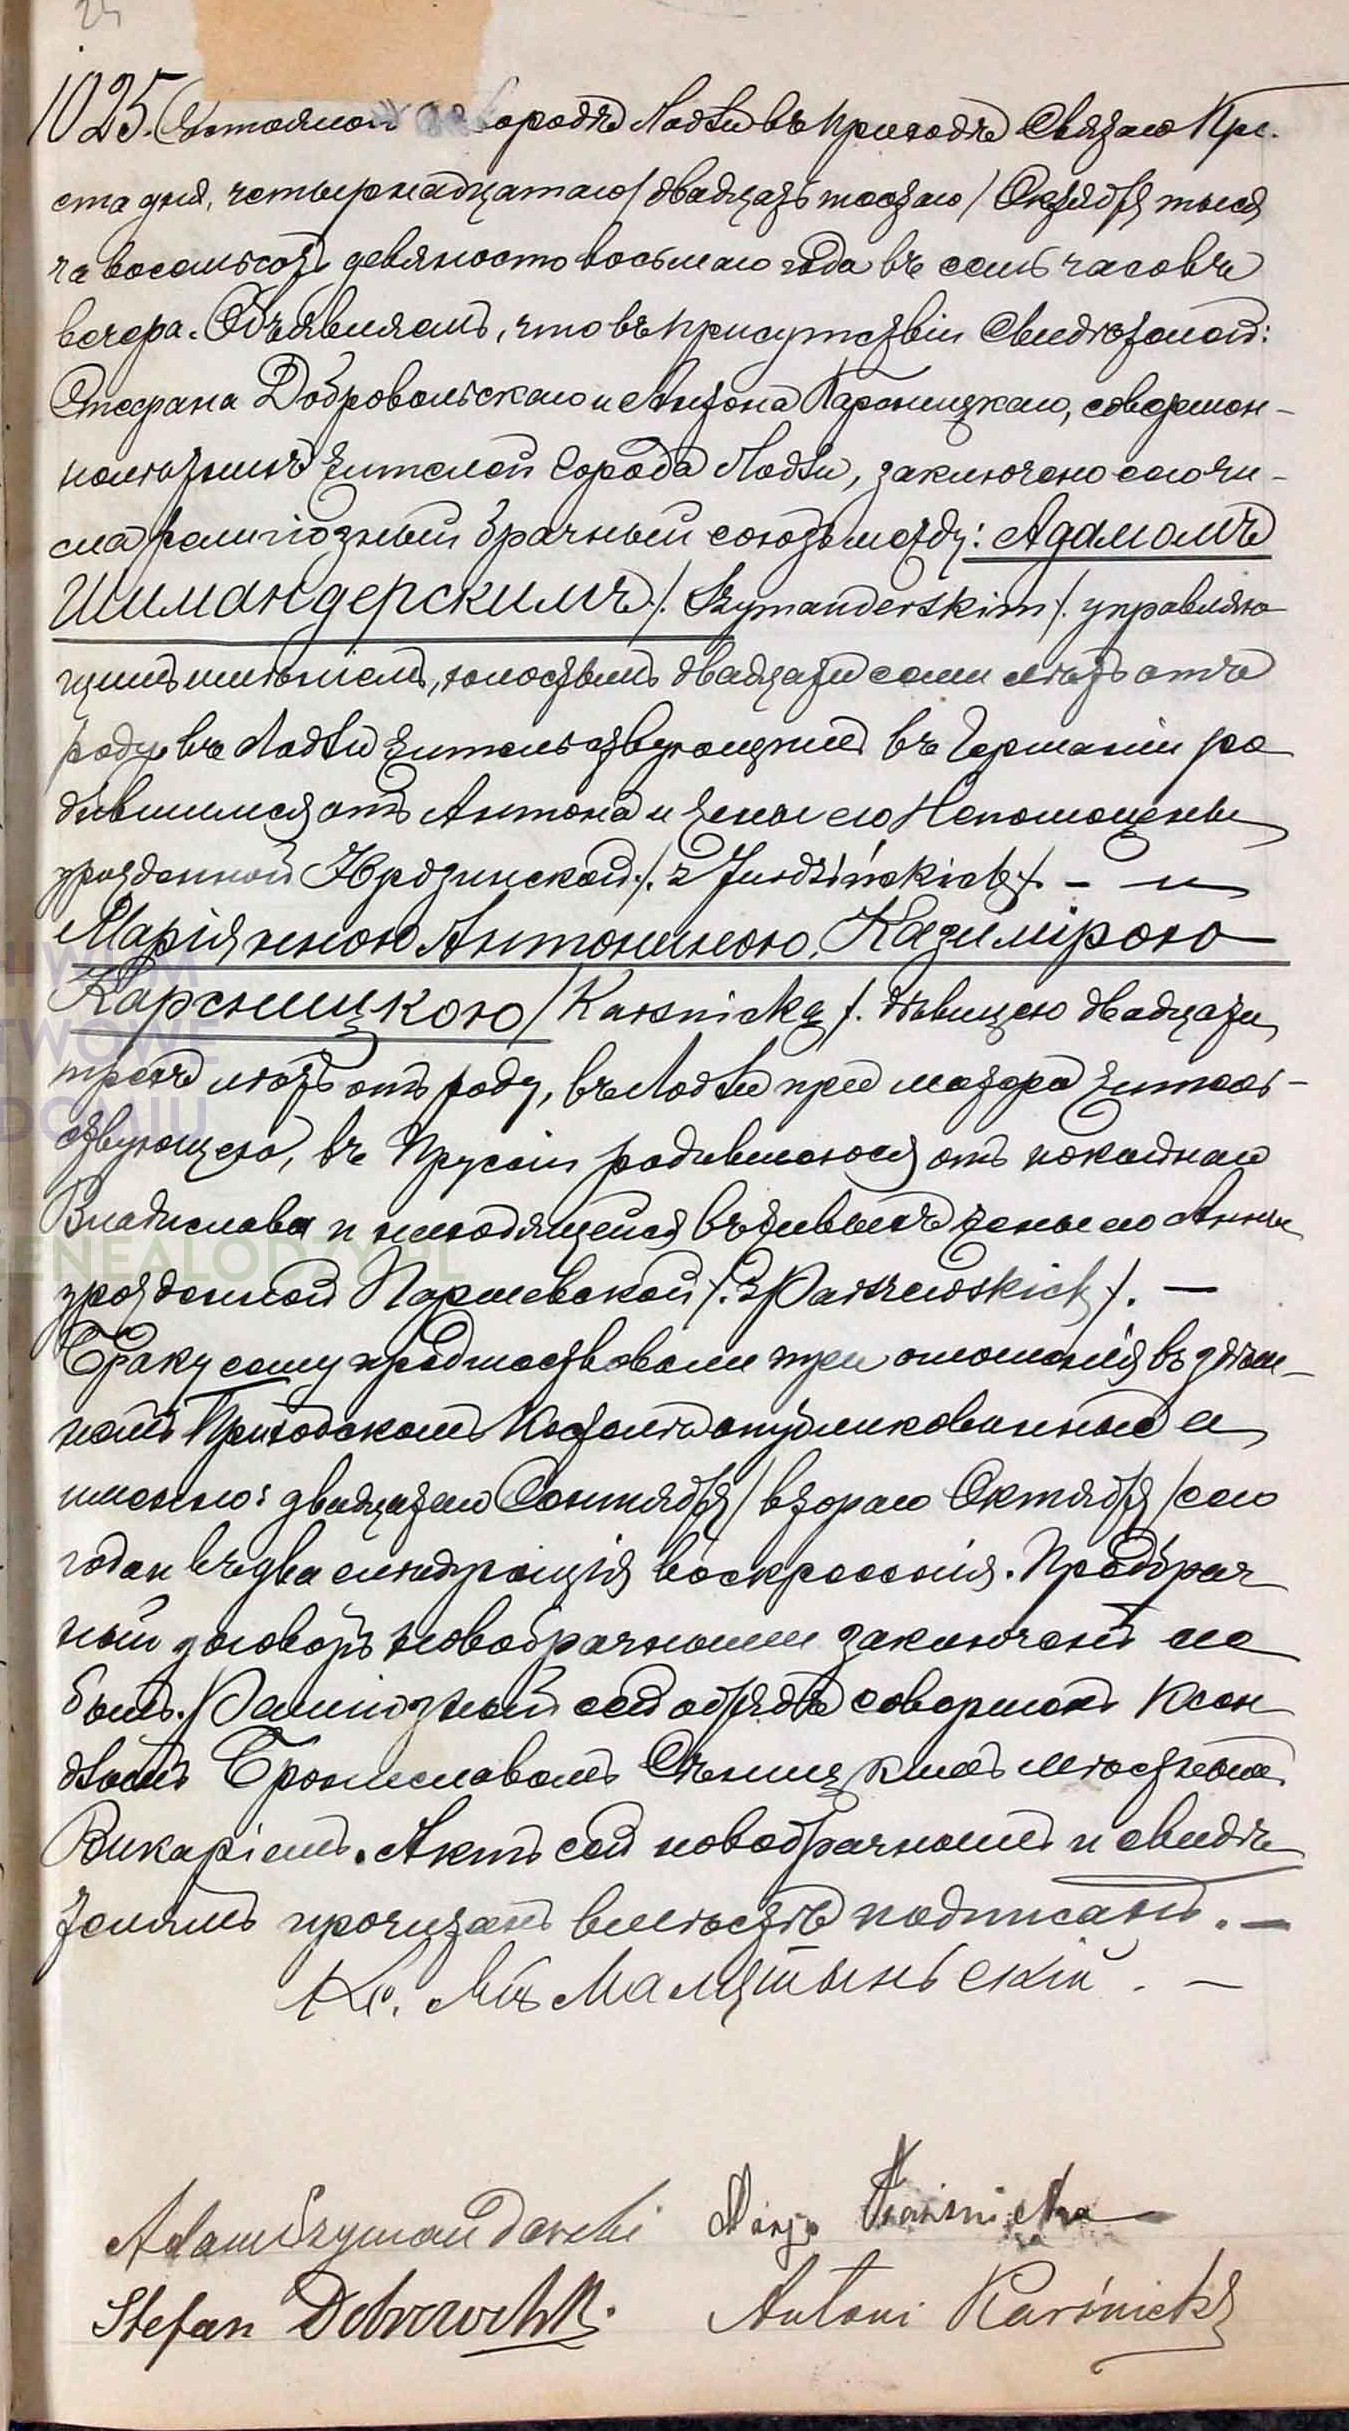 24
1025. Состоялось въ Городѣ Лодзи въ Приходѣ Святаго Кре-
ста дня, четырнадцатаго / двадцать шестаго / Октября тысяча
ча восемьсотъ девяносто восьмаго года въ семь часовъ
вечера. Объявляемъ, что въ присутствіи свидѣтелей:
Стефана Добровольскаго и Антона Карсницкаго, совершен-
нолѣтнихъ жителей Города Лодзи, заключено сего чи-
сла религіозный брачный союзъ между: Адамомъ
Шимандерскимъ /. Szymanderskim /. управляю
щимъ имѣніемъ, холостымъ двадцати семи лѣтъ отъ
роду въ Лодзи жительствующимъ въ Германіи ро
дившимся отъ Антона и жены его Непомоцены
урожденной Юрдзинской /. z Jurdzińskich /. – и
Маріянною Антониною, Казимірою
Карсницкою / Karsnicką /. дѣвицею двадцати
трехъ лѣтъ отъ роду, въ Лодзи при матери житель-
ствующею, въ Пруссіи родившеюся отъ покойнаго
Владислава и находящейся въ живыхъ жены его Анны
урожденной Паршевской /. z Parszewskich /. —
Браку сему предшествовали три оглашенія въ здѣш-
немъ Приходскомъ Костелѣ опубликованныя а
именно: двадцатаго Сентября / втораго Октября / сего
года и въ два слѣдующія воскресенія. Предбрач
ный договоръ новобрачными заключенъ не
былъ. Религіозный сей обрядъ совершонъ Ксен
дзомъ Брониславомъ Сѣницкимъ мѣстнымъ
Викаріемъ. Актъ сей новобрачнымъ и свидѣ
телямъ прочитанъ вмѣстѣ подписанъ. —
Кс. Шмидель
Adam Szymanderski Marja Karśnicka
Stefan Dobrowolski. Antoni Karśnicki
GENEALODZY.PL